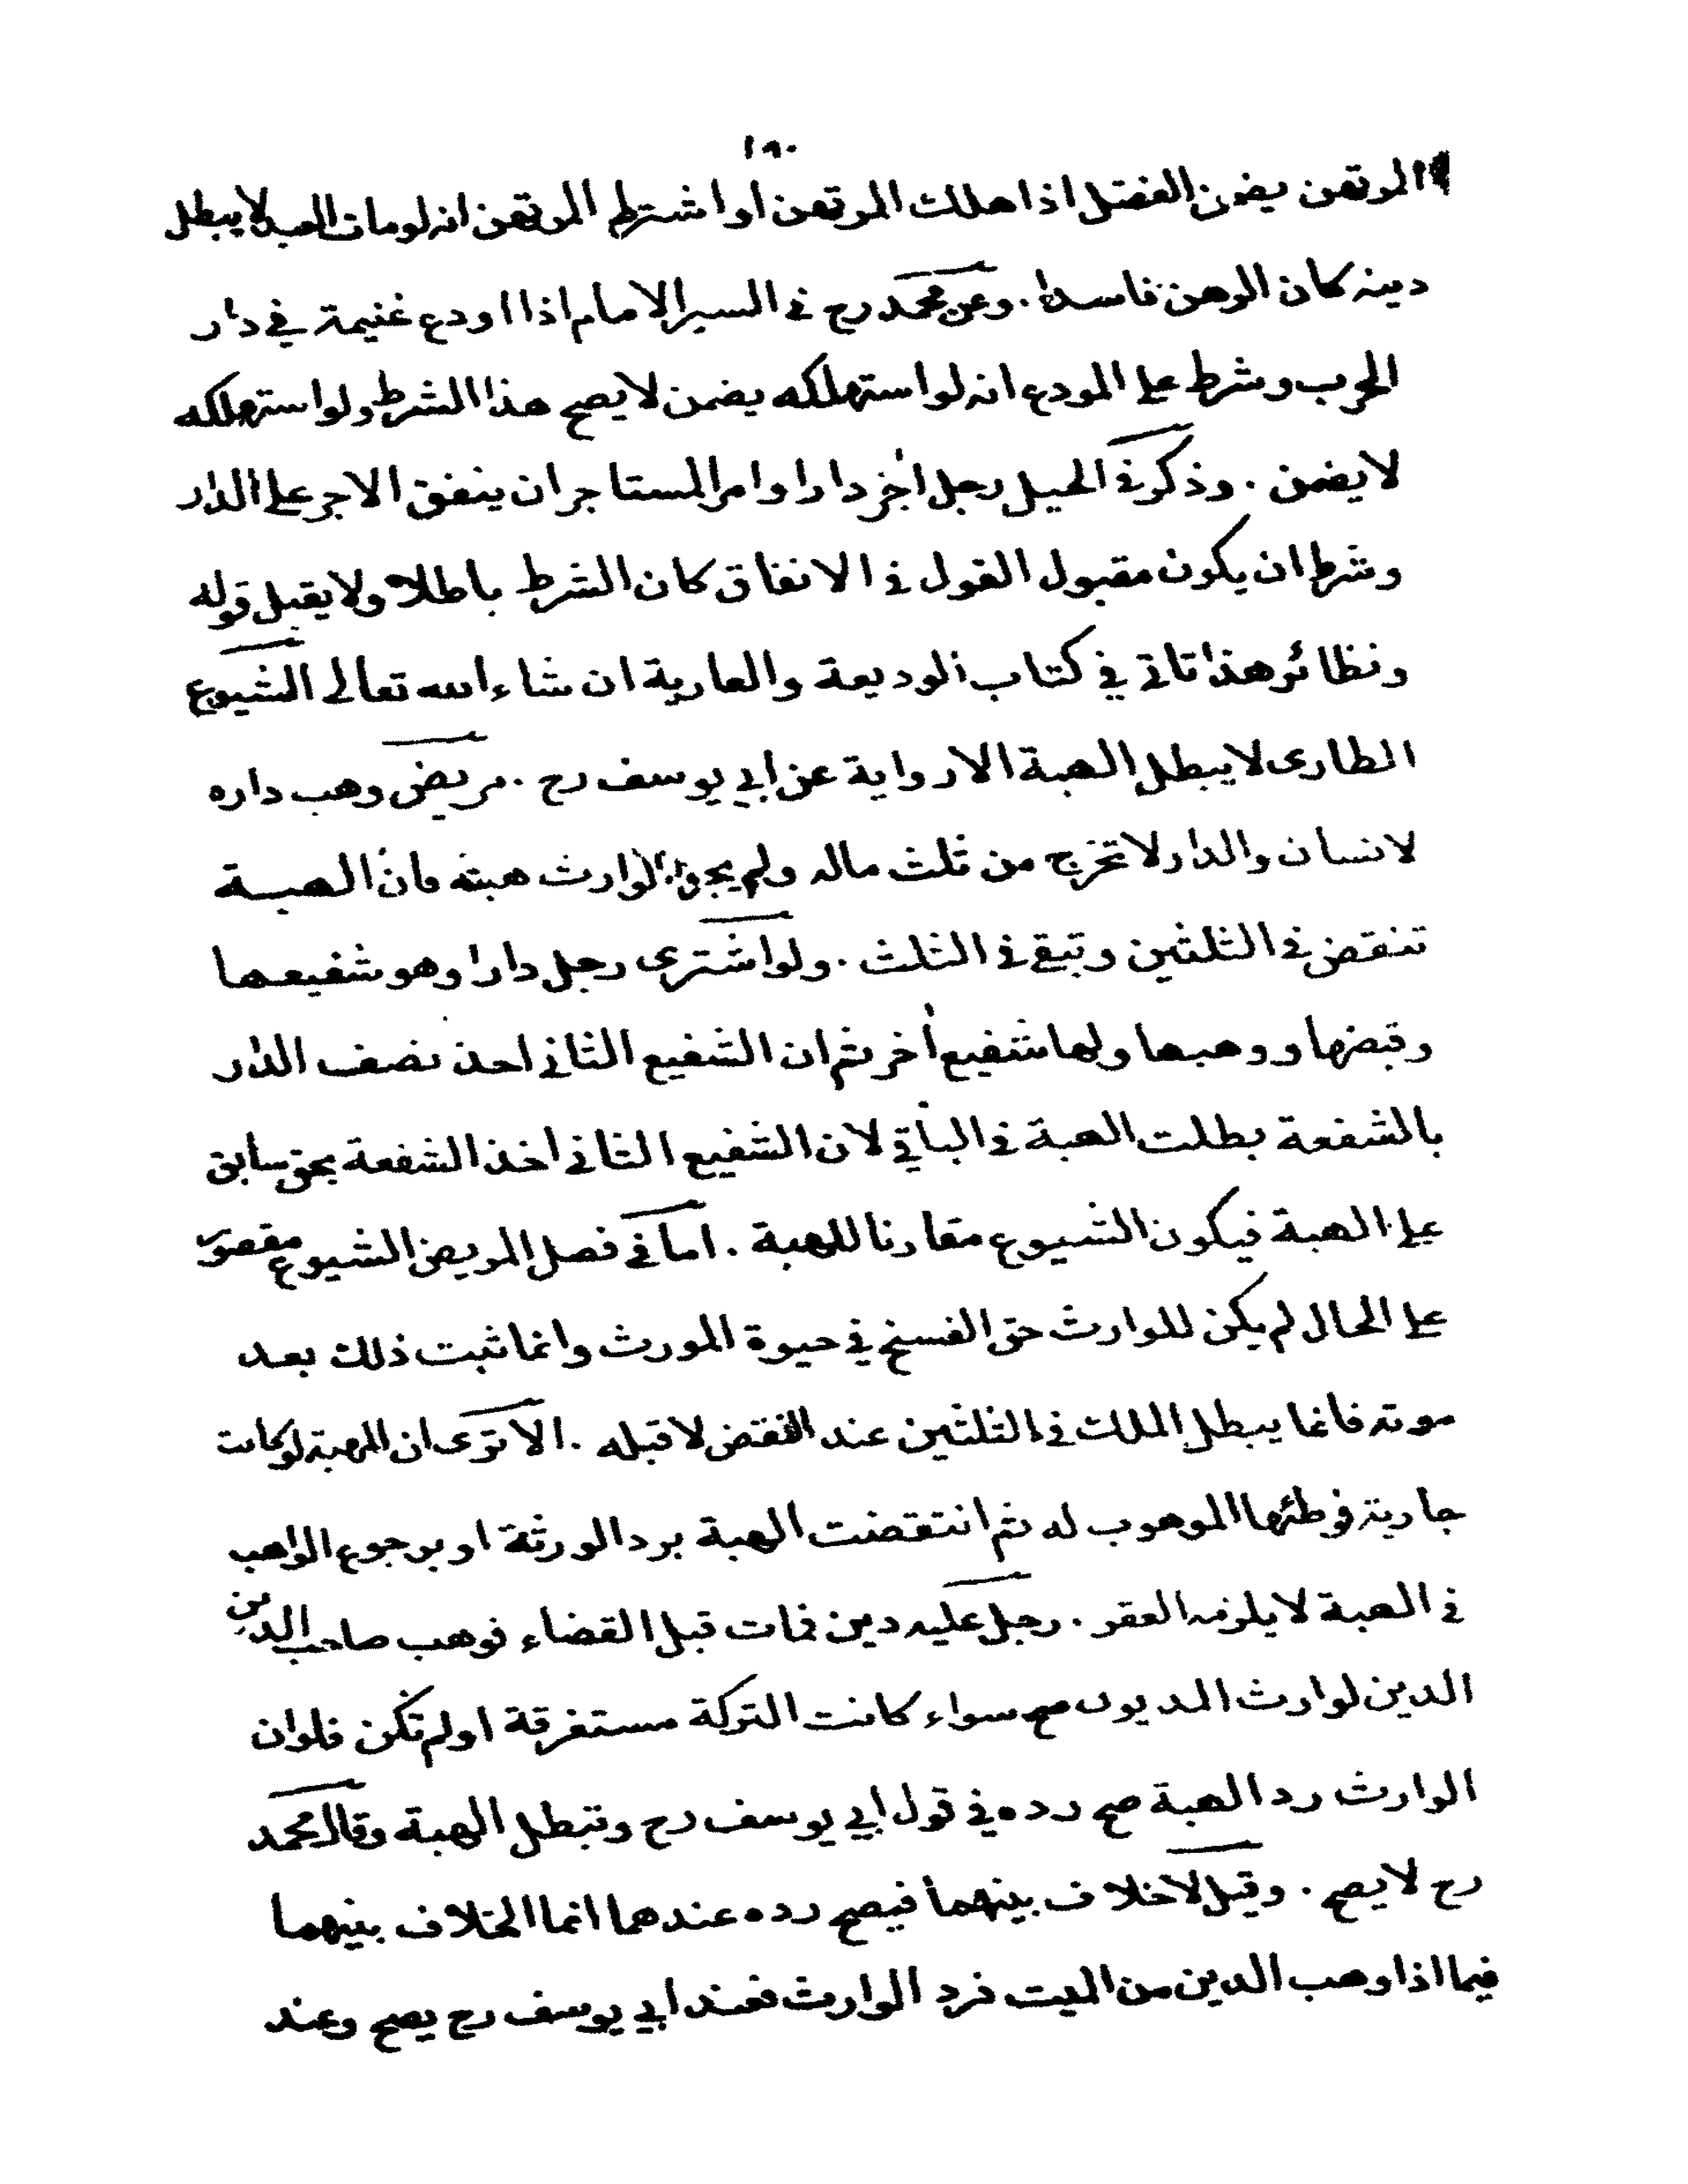 ١٩٠
المرتهن يضمن الفضل اذا هلك المرتهن او اشترط المرتهن انه لو مات العبد لا يبطل
دينه كان الرهن فاسدا . وعن محمد رح في السير الامام اذا اودع غنيمة في دار
الحرب وشرط على المودع انه لو استهلكه يضمن لا يصح هذا الشرط ولو استهلكه
لا يضمن . وذكر في الحيل رجل أجر دارا وامر المستاجر ان ينفق الاجر على الدار
وشرط ان يكون مقبول القول في الانفاق كان الشرط باطلا ولا يقبل قوله
ونظائر هذا تاتي في كتاب الوديعة والعارية ان شاء الله تعالى الشيوع
الطارى لا يبطل الهبة الا رواية عن ابي يوسف رح . مريض وهب داره
لانسان والدار لا تخرج من ثلث ماله ولم يجوز الوارث هبته فان الهبة
تنقض في الثلثين وتبقى في الثلث . ولو اشترى رجل دارا وهو شفيعها
وقبضها ووهبها ولها شفيع أخر ثم ان الشفيع الثاني اخذ نصف الدار
بالشفعة بطلت الهبة في الباقي لان الشفيع الثاني اخذ الشفعة بحق سابق
على الهبة فيكون الشيوع مقارنا للهبة . اما في فصل المريض الشيوع مقصور
على الحال لم يكن للوارث حق الفسخ في حيوة المورث وانما ثبت ذلك بعد
موته فانما يبطل الملك في الثلثين عند النقض لا قبله . الا ترى ان الهبة لو كانت
جارية فوطئها الموهوب له ثم انتقضت الهبة برد الورثة او برجوع الواهب
في الهبة لا يلزمه العقر . رجل عليه دين فمات قبل القضاء فوهب صاحب الدين
الدين لوارث المديون صح سواء كانت التركة مستغرقة او لم تكن فلو ان
الوارث رد الهبة صح رده في قول ابي يوسف رح وتبطل الهبة وقال محمد
رح لا يصح . وقيل لا خلاف بينهما فيصح رده عندهما انما الخلاف بينهما
فيما اذا وهب الدين من الميت فرد الوارث فعند ابي يوسف رح يصح وعند